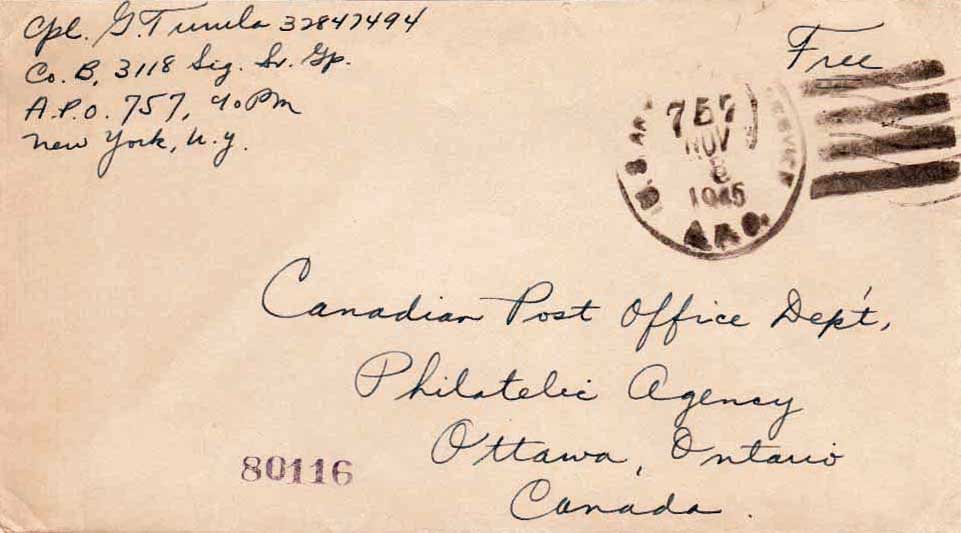 Cpl. G. Turula 32847494
Co. B, 3118 Sig. Sv. Gp.
A.P.O. 757, % PM
New York, N.Y.
Free
757
NOV
8
1945
U.S. AR
A.P.O.
Canadian Post Office Dep't,
Philatelic Agency
Ottawa, Ontario
Canada.
80116